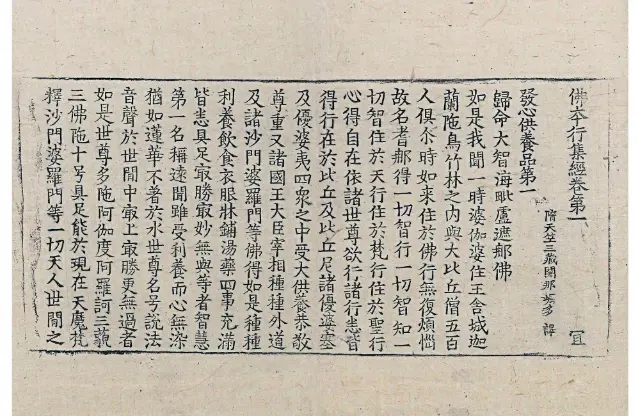 佛本行集經卷第一
隋天竺三藏闍那崛多 譯
宜
發心供養品第一
歸命大智海毗盧遮那佛
如是我聞一時婆伽婆住王舍城迦
蘭陁鳥竹林之內與大比丘僧五百
人俱尒時如來住於佛行無復煩惱
故名耆那得一切智行一切智知一
切智住於天行住於梵行住於聖行
心得自在依諸世尊欲行諸行悉皆
得行在於比丘及比丘尼諸優婆塞
及優婆夷四衆之中受大供養恭敬
尊重又諸國王大臣宰相種種外道
及諸沙門婆羅門等佛得如是種種
利養飲食衣服牀鋪湯藥四事充滿
皆悉具足㝡勝㝡妙無與等者智慧
第一名稱遠聞雖受利養而心無染
猶如蓮華不著於水世尊名号說法
音聲於世間中㝡上㝡勝更無過者
如是世尊多陁阿伽度阿羅訶三藐
三佛陁十号具足能於現在天魔梵
釋沙門婆羅門等一切天人世間之